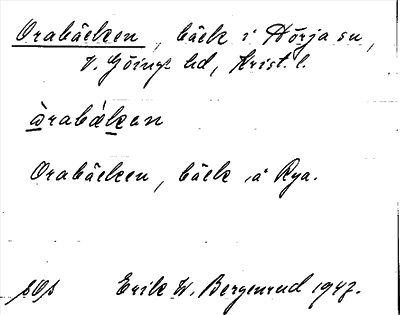 Orabäcken, bäck i Hörja sn,
V. Göinge hd, Krist. l.
òrabákan
Orabäcken, bäck å Rya.
Erik W. Bergenrud 1947.